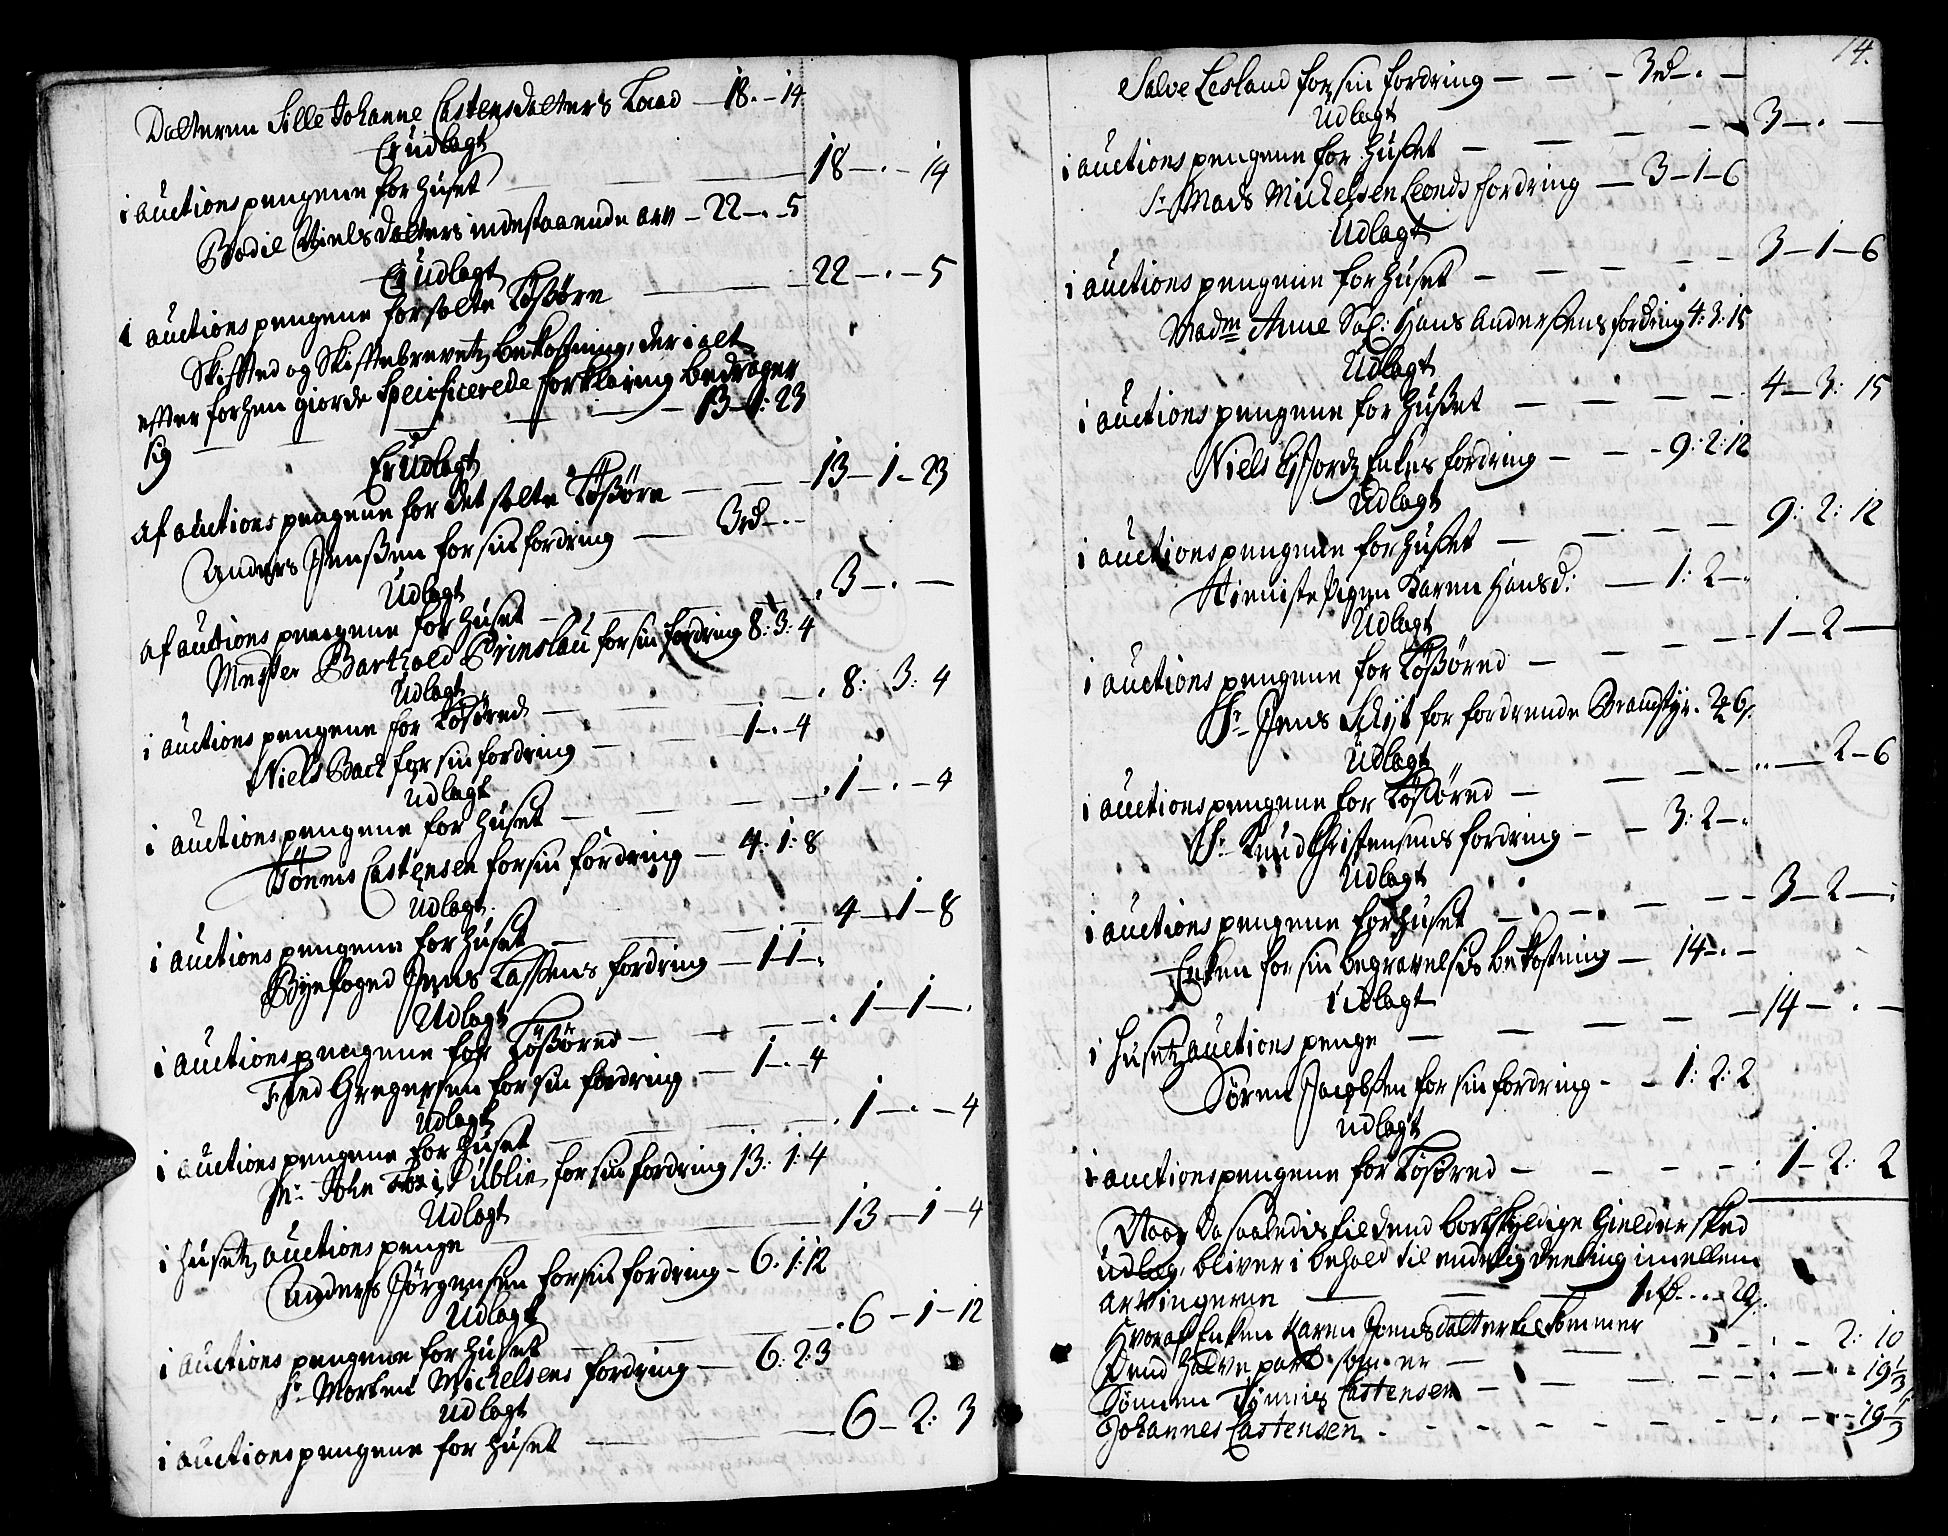 Datteren Sille Johanne Castensdatters Laad — 18 . – 14
Er udlagt
i auctions pengene for Huset — — — 18 — . – 14
Bodil Nielsdatters indestaaende arv – 22 – . – 5
Er Udlagt
i auctions pengene for solte Lössöre — — 22 – . – 5
Skifftet og Skifftebrevetz bekostning, der i alt
effter forhen giorde Specificerede forklaring bedrager
sig — — — — 13 – 1 : 23
Er Udlagt
af auctions pengene for det solte Lössöre — — 13 – 1 – 23
Anders Jenssen for sin fordring — 3rd – . –
Udlagt
af auctions pengene for Huset — — — . 3 – . —
Mester Bartzold Prinslau for sin fordring 8 : 3 : 4
Udlagt
i auctions pengene for Lösöred — — — . 8 : 3 : 4
Niels Back for sin fordring — — 1 – . – 4
Udlagt
i auctions pengene for Huset — — — . 1 – . – 4
Tönnes Castensen for sin fordring — 4 . 1 : 8
Udlagt
i auctions pengene for Huset — — — 4 – 1 – 8
Byefoged Jens Lassens fordring — 1 – 1 – .
Udlagt
i auctions pengene for Lössöred — — — . 1 – 1 – .
Fred Gregersen for sin fordring — 1 – . – 4
Udlagt
i auctions pengene for Huset — — — . 1 – . – 4
Mr. John i Dublin, for sin fordring 13 : 1 : 4
Udlagt
i Husetz auctions penge — — — 13 – 1 – 4
Anders Jörgensen for sin fordring – 6 . 1 : 12
Udlagt
i auctions pengene for Huset — — . 6 – 1 – 12
Sr. Morten Mickelsens fordring — 6 : 2 : 3
Udlagt
i auctions pengene for Huset — — 6 – 2 : 3
14.
Salve Lesland for sin fordring — — – 3rd – . –
Udlagt
i auctions pengene for Huset — — — 3 – . —
Sr. Mads Mickelsen Leonds fordring — 3 – 1 – 6
Udlagt
i auctions pengene for Huset — — — 3 – 1 – 6
Madm Anne Sal: Hans Anderssens fordring 4 : 3 : 15
Udlagt
i auctions pengene for Huset — — — 4 – 3 : 15
Niels Enkes fordring — — – 9 : 2 : 12
Udlagt
i auctions pengene for Huset — — — 9 : 2 : 12
Tieniste Pigen Karen Hansd: — 1 : 2 – .
Udlagt
i auctions pengene for Lössöred — — — 1 – 2 —
Sr. Jens for fordrende Brandstyr . 2 6 s.
Udlagt
i auctions pengene for Lössöred — — — . . — 2 – 6
Sr. Knud Christensens fordring – – 3 : 2 – .
Udlagt
i auctions pengene for Huset — — — 3 – 2 — .
Enken for sin begravelsis bekostning — 14 – . –
Udlagt
i Husetz auctions penge — — — 14 – . –
Sören Jacobsen for sin fordring – – 1 : 2 : 2
Udlagt
i auctions pengene for Lösöred — — — 1 – 2 : 2
Naar da saaledis til dend bortskyldige Gield er sked
udlæg, bliver i behold til endelig deeling imellem
arvingerne — — — 1 . . . 20 s.
Hvoraf Enken Karen Joensdatter bekommer
Dend halve part som er — — — . . – 2 : 10
Sönnen Tönnes Castensen – — — . – . . 19 1/3
Johannes Castensen . – – – – – . . . – 19 1/3